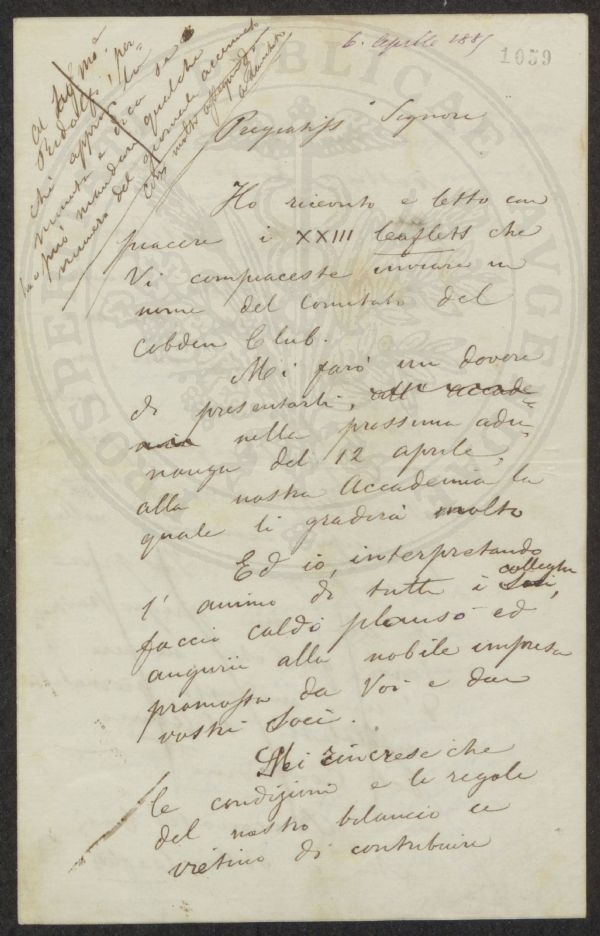 6. Aprile 1885
1059
Al Segmo
Perdalgi, per
chè apprési la
minuta e dica se
può mandare qualche
numero del giornale accennato
con molto
Pregiatiss Signore
Ho ricevuto e letto con
piacere i XXIII leaflets che
Vi compiaceste inviare in
nome del Comitato del
Cobden Club.
Mi farò un dovere
di presentarli, all' accade-
mia nella prossima adu-
nanza del 12 aprile,
alla nostra Accademia la
quale li gradirà molto
Ed io, interpretando
l' animo di tutti i Soci, colleghi
faccio caldo plauso ed
augurii alla nobile impresa
promossa da Voi e dai
vostri Soci.
Mi rincresce che
le condizioni e le regole
del nostro bilancio ci
vietino di contribuire
PUBLICAE
PROSPERITATI
AUGENDAE